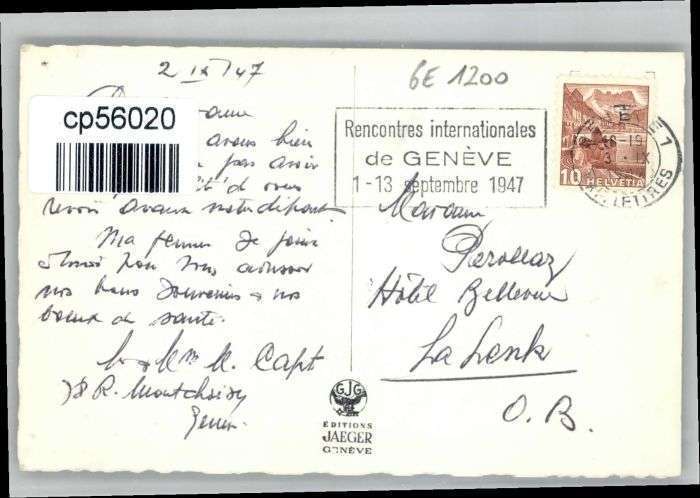 2 IX 47
GE 1200
cp56020
avons bien
pas avoir
de vous
revoir avant notre départ.
Ma femme se joint
à moi pour vous adresser
nos bons souvenirs & nos
voeux de santé.
M. Capt
R. Montchoisy
Rencontres internationales
de GENÈVE
1-13 septembre 1947
18-19
3 IX
LETTRES
1
10
HELVETIA
Madame
Hôtel Bellevue
La Lenk
O. B.
GJG
EDITIONS
JAEGER
GENÈVE